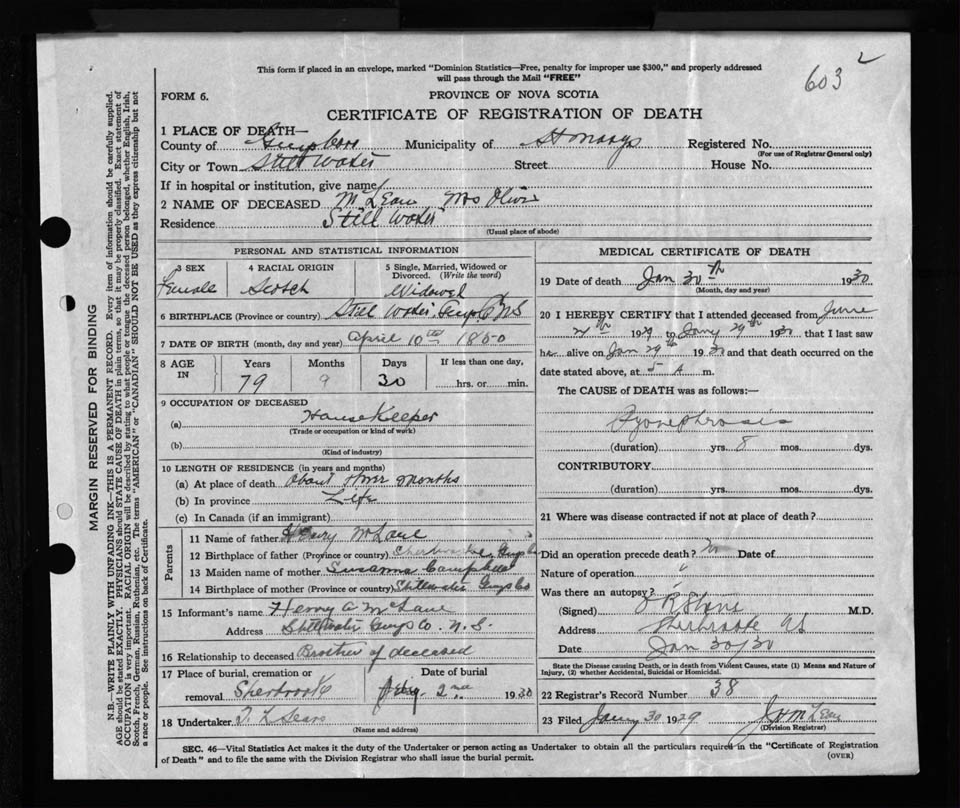 603
This form if placed in an envelope, marked "Dominion Statistics—Free, penalty for improper use $300," and properly addressed
will pass through the Mail "FREE"
FORM 6.
PROVINCE OF NOVA SCOTIA
CERTIFICATE OF REGISTRATION OF DEATH
1 PLACE OF DEATH—
County of Municipality of St Marys Registered No.
(For use of Registrar General only)
City or Town Still Water Street House No.
If in hospital or institution, give name
2 NAME OF DECEASED McLean Mrs
Residence Still Water
(Usual place of abode)
PERSONAL AND STATISTICAL INFORMATION
3 SEX 4 RACIAL ORIGIN 5 Single, Married, Widowed or
Divorced. (Write the word)
Female Scotch Widowed
6 BIRTHPLACE (Province or country) Still Water, Guys Co NS
7 DATE OF BIRTH (month, day and year) April 10th 1850
8 AGE IN Years Months Days If less than one day,
79 9 30 hrs. or min.
9 OCCUPATION OF DECEASED
(a) House Keeper
(Trade or occupation or kind of work)
(b)
(Kind of industry)
10 LENGTH OF RESIDENCE (in years and months)
(a) At place of death About months
(b) In province Life
(c) In Canada (if an immigrant)
Parents
11 Name of father Henry McLane
12 Birthplace of father (Province or country) Guys Co
13 Maiden name of mother Susanna Campbell
14 Birthplace of mother (Province or country) Stillwater Guys Co
15 Informant's name Henry A McLane
Address Stillwater Guys Co. N.S.
16 Relationship to deceased Brother of deceased
17 Place of burial, cremation or
removal Sherbrooke
Date of burial
2nd 1930
18 Undertaker Sears
(Name and address)
MEDICAL CERTIFICATE OF DEATH
19 Date of death Jan 30th 1930
(Month, day and year)
20 I HEREBY CERTIFY that I attended deceased from June
1929 to Jany 29th 1930 that I last saw
her alive on Jan 29th 1930 and that death occurred on the
date stated above, at 5 A m.
The CAUSE of DEATH was as follows:—
Pyonephrosis
(duration) yrs. 8 mos. dys.
CONTRIBUTORY
(duration) yrs. mos. dys.
21 Where was disease contracted if not at place of death?
Did an operation precede death? No Date of
Nature of operation
Was there an autopsy?
(Signed) M.D.
Address Sherbrooke NS
Date Jan 30/30
State the Disease causing Death, or in death from Violent Causes, state (1) Means and Nature of
Injury, (2) whether Accidental, Suicidal or Homicidal.
22 Registrar's Record Number 38
23 Filed Jany 30 1929 McLean
(Division Registrar)
SEC. 46—Vital Statistics Act makes it the duty of the Undertaker or person acting as Undertaker to obtain all the particulars required in the "Certificate of Registration
of Death" and to file the same with the Division Registrar who shall issue the burial permit.
(OVER)
MARGIN RESERVED FOR BINDING
N.B.—WRITE PLAINLY WITH UNFADING INK—THIS IS A PERMANENT RECORD. Every item of information should be carefully supplied.
AGE should be stated EXACTLY. PHYSICIANS should STATE CAUSE OF DEATH in plain terms, so that it may be properly classified. Exact statement of
OCCUPATION is very important. RACIAL ORIGIN will be described by stating to what people or tongue the deceased person belonged, whether English, Irish,
Scotch, French, German, Russian, Ruthenian, etc. The terms "AMERICAN" or "CANADIAN" SHOULD NOT BE USED as they express citizenship but not
a race or people. See instructions on back of Certificate.